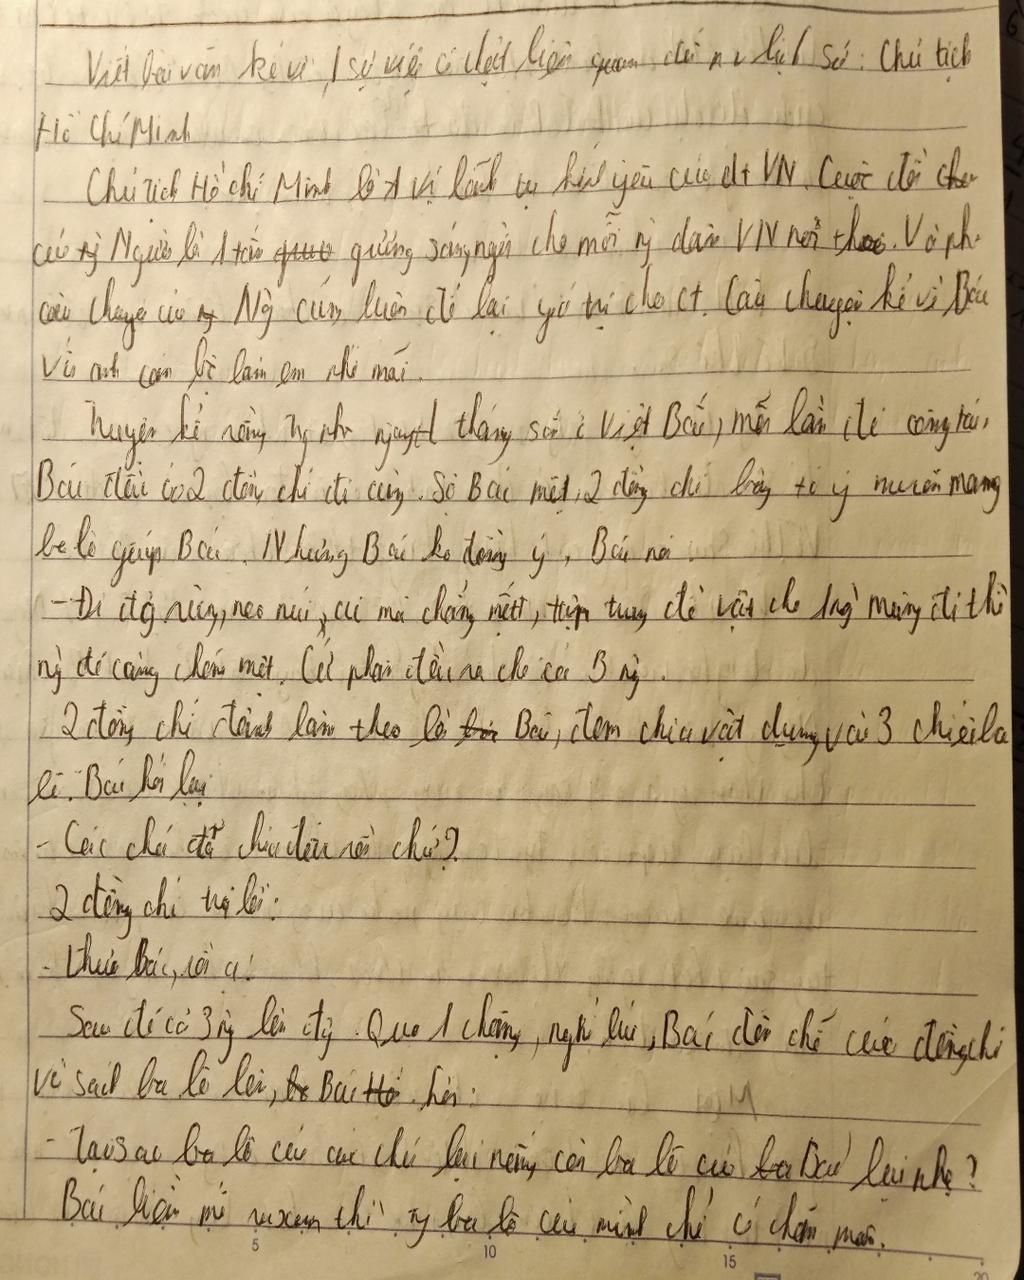 Viết bài văn kể về 1 sự việc có thật liên quan đến n v lịch sử: Chủ tịch
Hồ Chí Minh
Chủ tịch Hồ Chí Minh là 1 vị lãnh tụ kính yêu của dt VN. Cuộc đời
của Người là 1 tấm gương sáng ngời cho mỗi ng dân VN noi theo. Và
câu chuyện của Ng cũng luôn để lại giá trị cho ct. Câu chuyện kể về Bác
và anh cán bộ làm em nhớ mãi.
Truyện kể rằng, ngày tháng sống ở Việt Bắc, mỗi lần đi công tác,
Bác đều có 2 đồng chí đi cùng. Sợ Bác mệt, 2 đồng chí bày tỏ ý muốn mang
ba lô giúp Bác. Nhưng Bác ko đồng ý, Bác nói:
- Đi đg rừng, leo núi, ai mà chẳng mệt, tập trung đồ vật cho 1 ng mang đi thì
ng đó càng chóng mệt. Cứ phân đều ra cho cả 3 ng.
2 đồng chí đành làm theo lời Bác, đem chia vật dụng vào 3 chiếc ba
lô. Bác hỏi lại
- Các chú đã chia đều rồi chứ?
2 đồng chí trả lời:
- Thưa Bác, rồi ạ!
Sau đó cả 3 ng lên đg. Qua 1 chặng, nghỉ lúc, Bác đến chỗ các đồng chí
và sách ba lô lên, Bác hỏi:
- Tại sao ba lô của các chú lại nặng, còn ba lô của Bác lại nhẹ?
Bác liền mở ra xem thì thấy ba lô của mình chỉ có chăn màn.